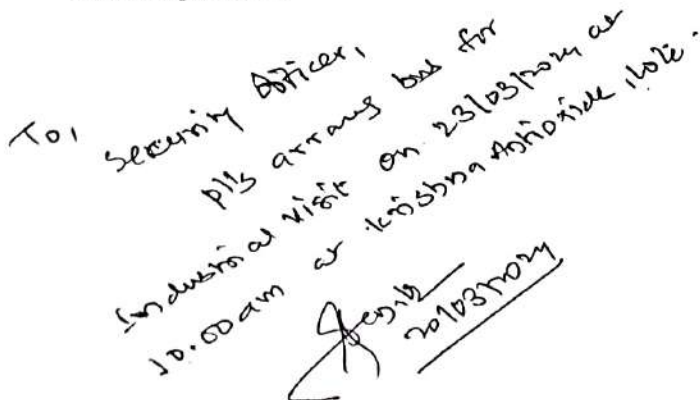 To,
Security Officer,
plls arrang bus for
Industrial visit on 23/03/2024 at
10.00am at Krishna Antioxide
20/03/2024